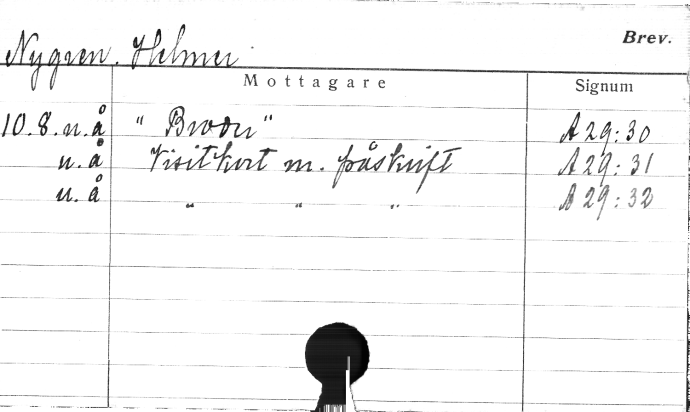 Brev.
Nygren. Helmer
Mottagare Signum
10.8. u.å " Broder" A 29:30
u.å Visitkort m. påskrift A 29:31
u.å " " " A 29:32